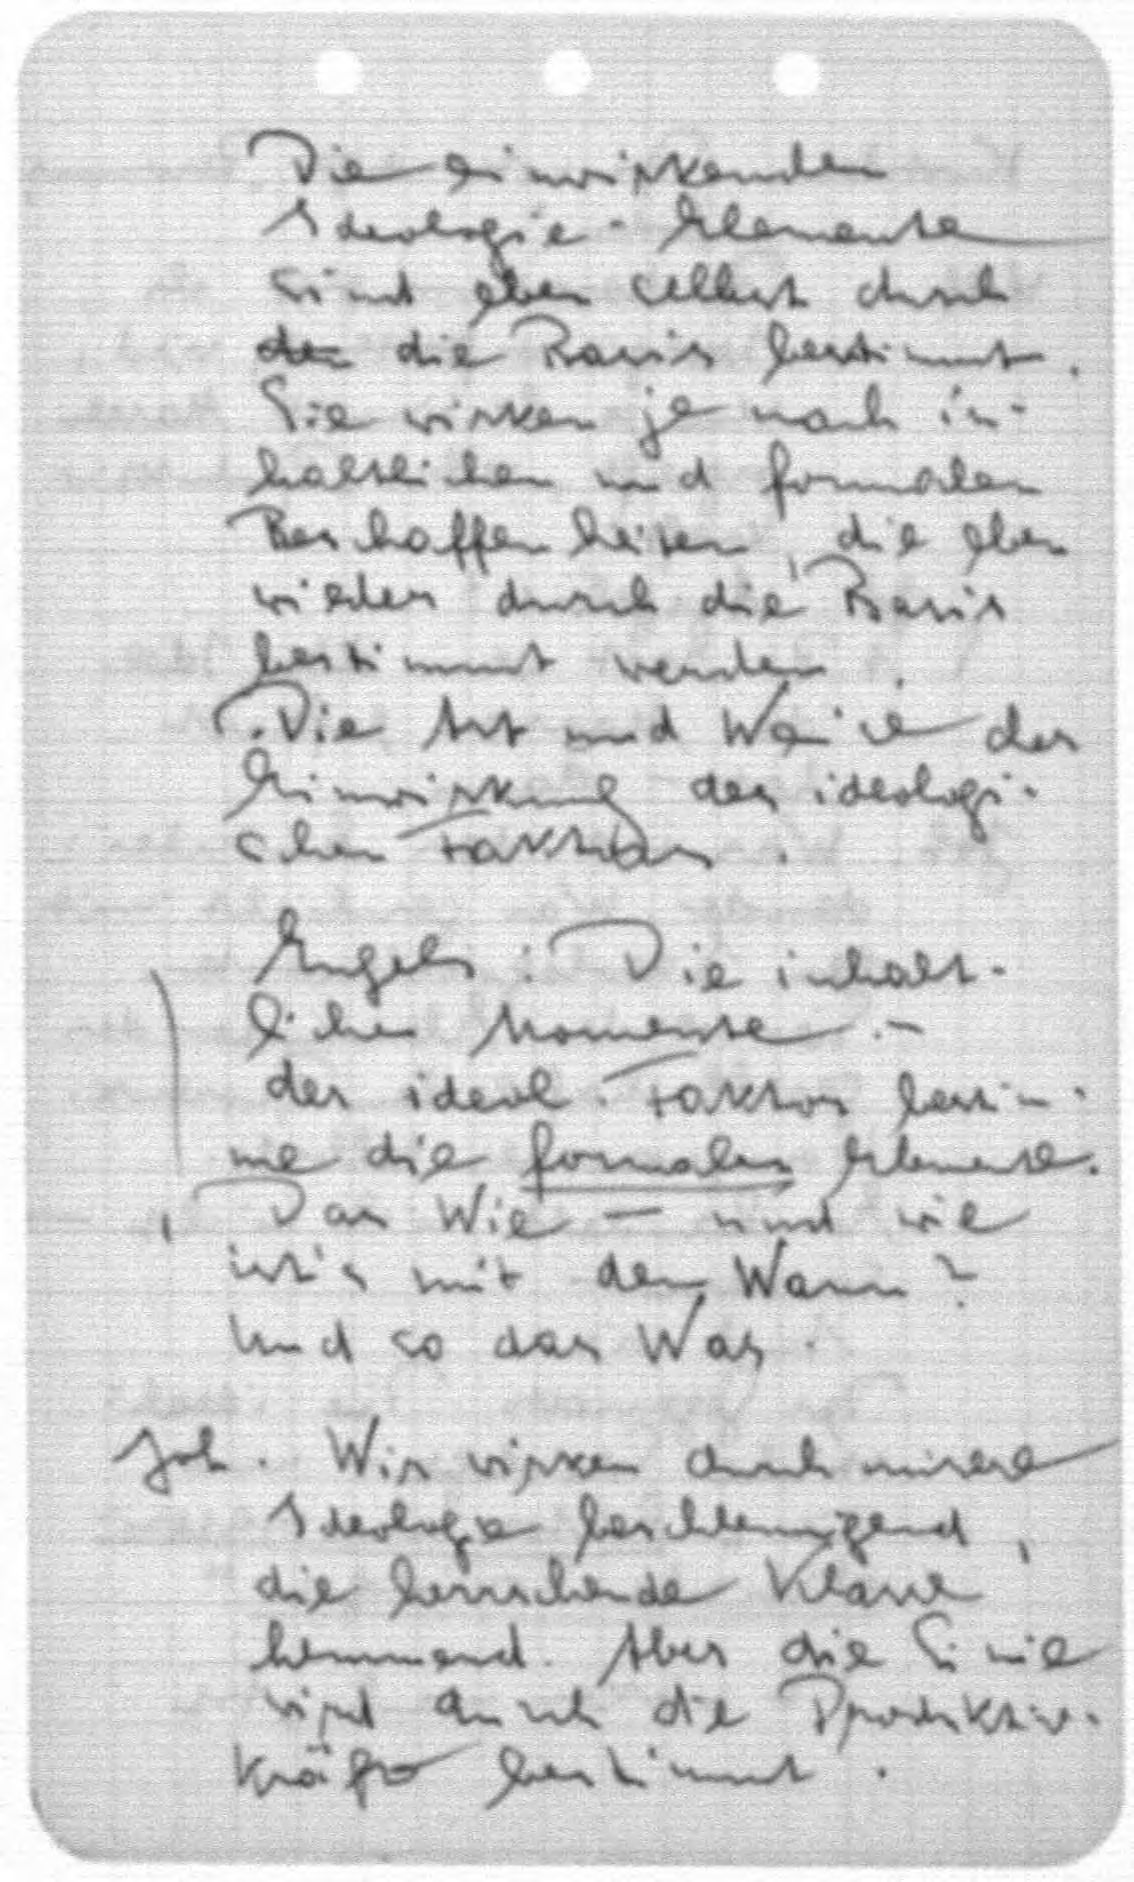 Die einwirkenden
Ideologie-Elemente
sind eben selbst durch
der die Basis bestimmt.
Sie wirken je nach in-
haltlichen und formalen
Beschaffenheiten, die eben
wieder durch die Basis
bestimmt werden.
Die Art und Weise der
Einwirkung der ideologi-
schen Faktoren.
Engels: Die inhalt-
lichen Momente -
der ideol. Faktor bestim-
me die formalen Elemente.
Das Wie — und wie
ist's mit dem Wann?
Und so das Was.
Joh. Wir wirken durch unsere
Ideologie beschleunigend,
die herrschende Klasse
hemmend. Aber die Linie
wird durch die Produktiv-
kräfte bestimmt.